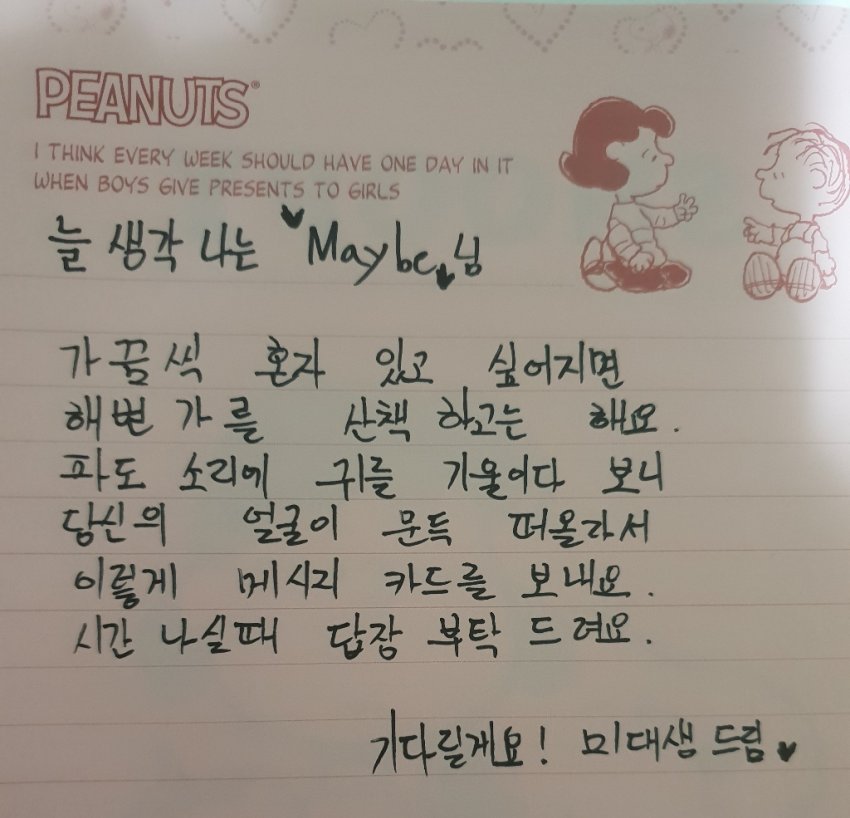 PEANUTS®
I THINK EVERY WEEK SHOULD HAVE ONE DAY IN IT
WHEN BOYS GIVE PRESENTS TO GIRLS
늘 생각 나는 "Maybe"님
가끔씩 혼자 있고 싶어지면
해변 가를 산책 하고는 해요.
파도 소리에 귀를 기울이다 보니
당신의 얼굴이 문득 떠올라서
이렇게 메시지 카드를 보내요.
시간 나실때 답장 부탁 드려요.
기다릴게요! 미대샘 드림